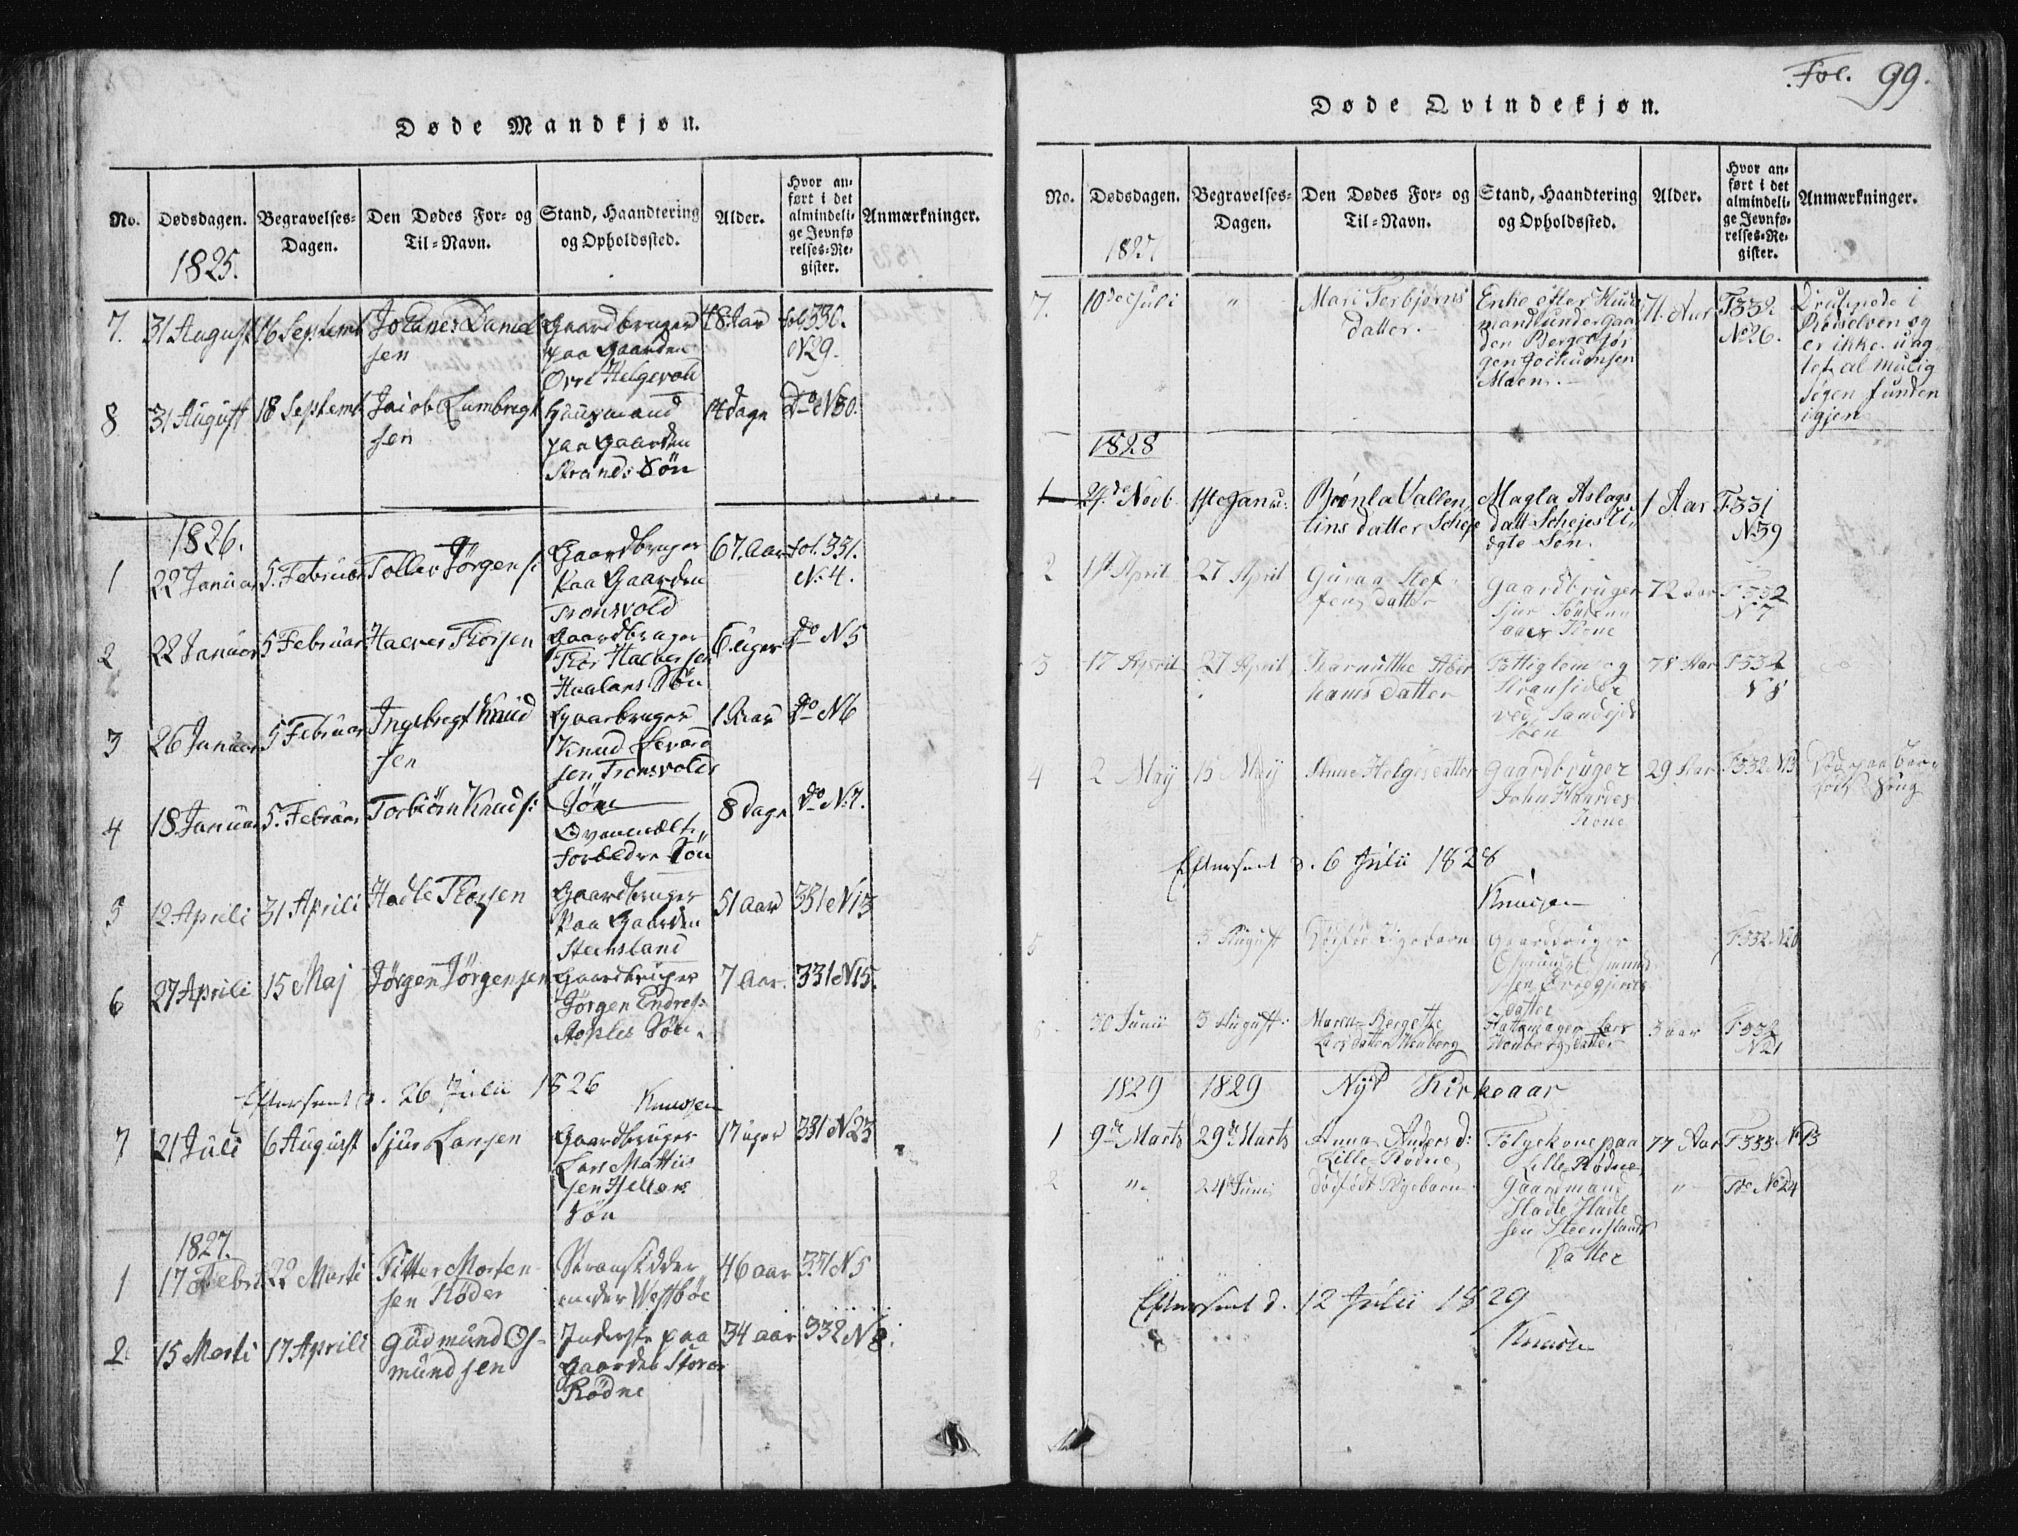 Døde Mandkjøn.
No. Dødsdagen. Begravelses-Dagen. Den Dødes For- og Til-Navn. Stand, Haandtering og Opholdssted. Alder. Hvor anført i det almindelige Jevnførelses-Register. Anmærkninger.
1825.
7. 31 August 16 Septembr Johanes Daniel
sen
Gaardbruger
paa Gaarden
Øvre Helgevold
48 Aar fol 330.
N 29.
8 31 August 18 Septembr Jacob Lambregt
sen
Huusmand
paa Gaarden
Strands Søn
14 dage Do N 30.
1826.
1 22 Januar 5. Februar Tollev Jørgens:
Gaardbruger
paa Gaarden
Tronsvold
67. Aar fol. 331.
N. 4.
2 22 Januar 5 Februar Halvor Thorsen
Gaardbruger
Thor Halversen
Haalans Søn
6 uger Do N 5
3 26 Januar 5 Februar Ingebregt Knud
sen
Gaarbruger
Knud
sen Tronsvolds
Søn
1 Aar Do N 6
4 18 Januar 5. Februar Torbiörn Knuds:
Ovenmelte
Forældre Søn
8 Dage Do N. 7.
5 12 Aprili 31 Aprili Hadle Thorsen
Gaardbruger
paa Gaarden
Steensland
51 Aar 331 N 13
6 27 Aprili 15 Maj Jørgen Jörgensen
Gaardbruger
Jörgen Endres:
Søn.
7 Aar. 331 N 15.
Efterseet d. 26 Julii 1826
Knudsen
7 21 Juli 6 August Sjur Larsen
Gaardbruger
Lars Mattis
sen
Søn
17 uger 331 N 23
1827.
1 17 Febr 22 Marti Pitter Morten
sen Röder
Stransidder
under Westböe
46 aar 331 N 5
2. 15 Marti 17 Aprili Gudmund Os-
mundsen
Inderste paa
Gaarden Store
Rødne
34 aar 332 N 8.
Fol. 99.
Døde Qvindekjøn.
No. Dødsdagen. Begravelses-Dagen. Den Dødes For- og Til-Navn. Stand, Haandtering og Opholdssted. Alder. Hvor anført i det almindelige Jevnførelses-Register. Anmærkninger.
1827
7. 10de Juli " Mari Terbjørns
datter.
Enke efter Huus
mand under Gaar
den Berge Jør
gen Jochumsen
Moen.
71. Aar F 332
No 26.
Druknede i
Røiselven og
er ikke uag
tet al mulig
søgen funden
igjen
1828
1 27de Novb. 1ste Janu: Brönla Vallen
tins datter Scheje
Magla Aslags
datt Schejes U
ægte Søn.
1 Aar F 331
N 39
2 1st April 27 April Guraa Stef
fens datter
Gaardbruger
Sjur
Kone
72 aar F 332
N 7
3 17 April 27 April Karnitthe Abra
hams datter
Fattiglem og
Stransidder
ved Sandejd
78 Aar F 332
N 8
4 2 May 15 May Anne Helgesdatter Gaardbruger
John
Kone
29 Aar F 332 N 13 Død paa Bar-
Efterseet d. 6 Julii 1828
Knudsen
5 3 August Dødfød Pigebarn Gaardbruger
Osmund Osmund
sen
datter
F 332 N 20
30 Junii 3 August: Maren Bergethe
Lars datter Wenberg
Hattemager Lars
Wenbergs datter
3 aar F 332
N 21
1829 1829 Nyt Kirkeaar
1 9de Marts 29de Marts Anna Anders d:
Lille Rødne
Følgekone paa
Lille Rødne
77 Aar F 333 N 13
2 " 24de Juni dödfödt Pigebarn
Gaardmand
Hadle Hadle
sen Steenslands
Datter
" Do No 24
Efterseet d. 12 Julii 1829
Knudsen